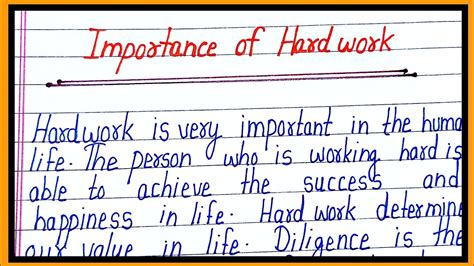 Importance of Hard work
Hardwork is very important in the huma
life. The person who is working hard is
able to achieve the success and
happiness in life. Hard work determine
our value in life. Diligence is the